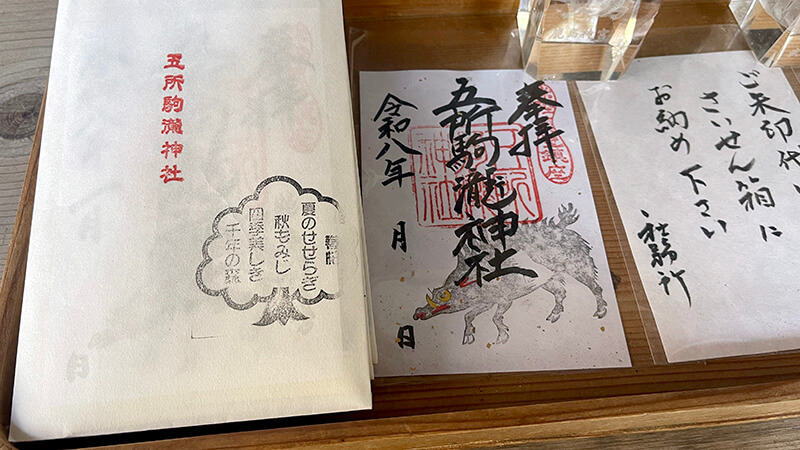 五所駒瀧神社
春桜
夏のせせらぎ
秋もみじ
四季美しき
千年の森
奉拝
五所駒瀧神社
令和八年
月
日
ご朱印代は
さいせん箱に
お納め下さい
社務所